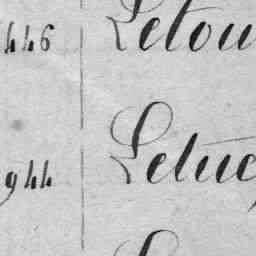 446 Letou
944 Letue